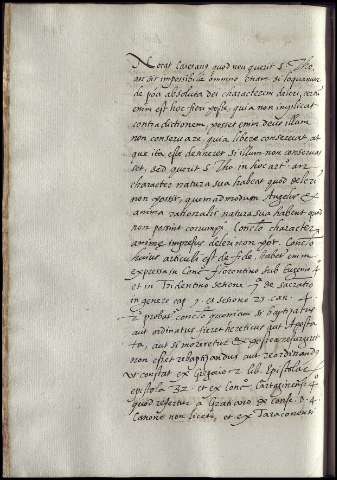 Notat Caietanus quod non querit S. Tho.
an sit impossibile omnino etiam si loquamur
de poā absoluta dei characterem deleri, certū
enim est hoc fieri posse, quia non implicat
contradictionem, posset enim deus illum
non conservare, quia libere conservat at
que ita esse desineret si illum non conserva
ret, sed querit S. Tho in hoc artº. an
character natura sua habeat quod deleri
non possit, quemadmodum Angelus et
anima rationalis natura sua habent quod
non possint corrumpi. Conclº character
anime impressus deleri non pot. Conclo
huius articuli est de fide, habet enim
expressa in Conc. florentino sub Eugenio 4
et in Tridentino sessione 7 de sacratis
in genere cap 9, et sessione 23 can. 4.
2 probat conclo. quoniam si baptizatus
aut ordinatus fieret hereticus aut Aposta
ta, aut si moreretur et postea resurgeret
non esset rebaptizandus aut reordinandus
ut constat ex Gregorio 2 lib. Epistolar
epistola 32. et ex Conc. Cartaginensi 4º
quod refertur a Gratiano de conse. d. 4.
Canone non liceat, et ex Taraconensi